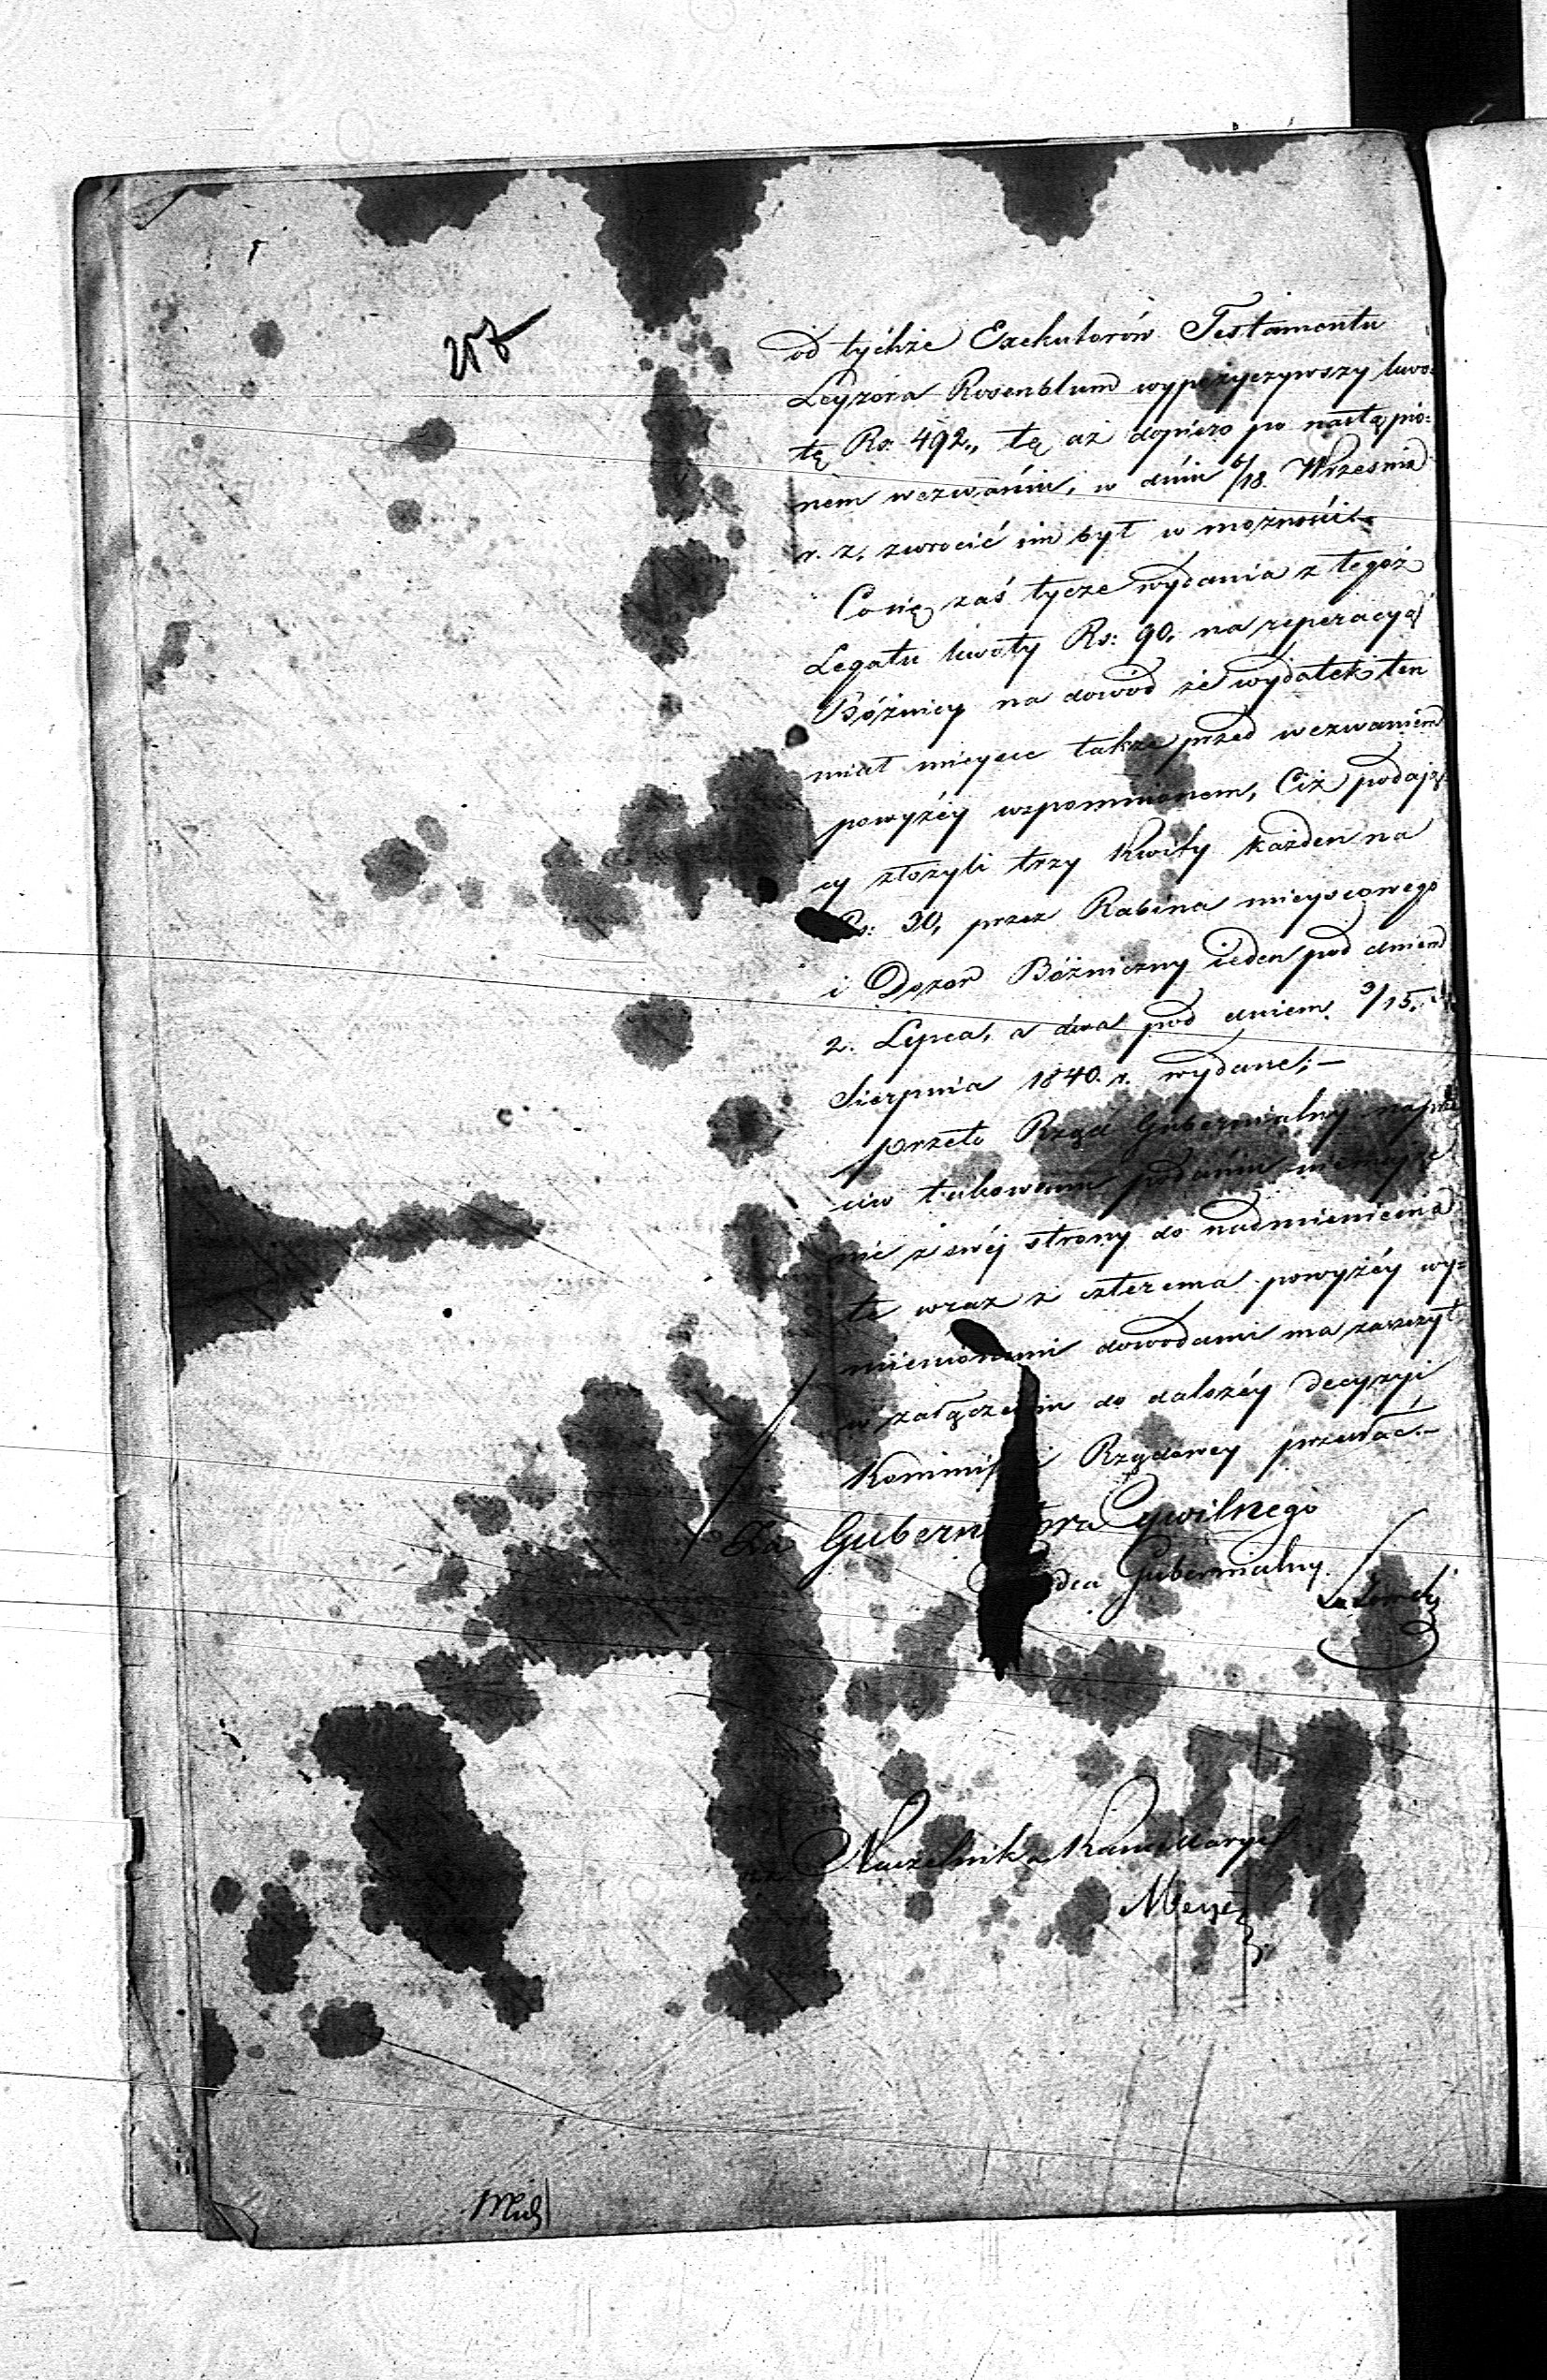 od tychże Exekutorów Testamentu
Leyzora Rosenblum wypożyczywszy kwo:
tę Rs. 492., tę aż dopiero po nastąpio:
nem wezwaniu, w dniu 6/18. Września
r. z. zwrocić im był w możności.
Co się zaś tycze wydania z tegoż
Legatu kwoty Rs: 90. na reperacyą
Bóżnicy na dowód że wydatek ten
miał mieysce także przed wezwaniem
powyżéy wspomnionem, Ciż podają:
cy złożyli trzy kwity każden na
Rs: 30, przez Rabina mieyscowego
i Dozor Bóżniczny ieden pod dniem
2. Lipca, a dwa pod dniem 3/15.
Sierpnia 1840. r. wydane; —
przeto Rząd Gubernialny
ciw takowemu podaniu niemając
nic z swéj strony do nadmienienia
te wraz z czterema powyżéy wy=
mienionemi dowodami ma zaszczyt
w załączeniu do dalszéy decyzyi
Kommissyi Rządowey przesłać.—
Za Gubernatora Cywilnego
Radca Gubernialny
Naczelnik Kancellaryi